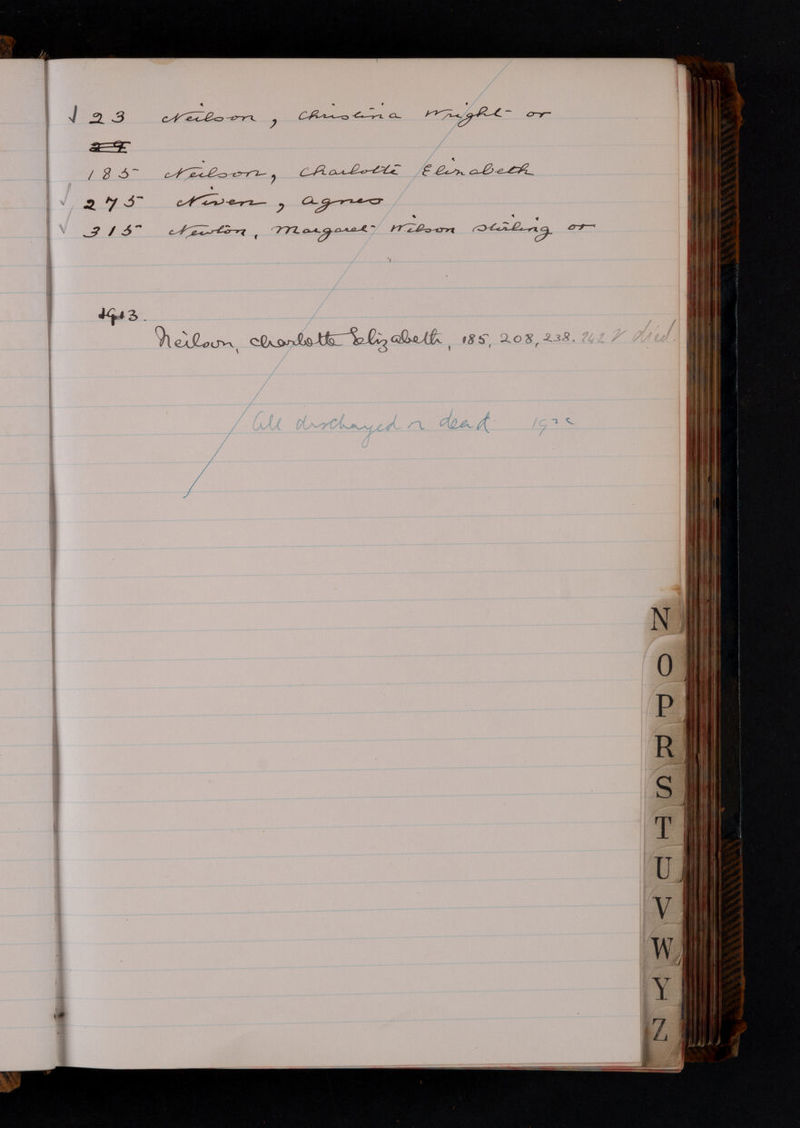 √ 23 Neilson, Christina Wright or
185 Neilson, Charlotte Elizabeth
√ 275 Niven, Agnes
√ 315 Newton, Margaret Wilson Stirling or
1913.
Neilson, Charlotte Elizabeth, 185, 208, 238. 242 V died.
All discharged or dead
N
O
P
R
S
T
U
V
W
Y
Z